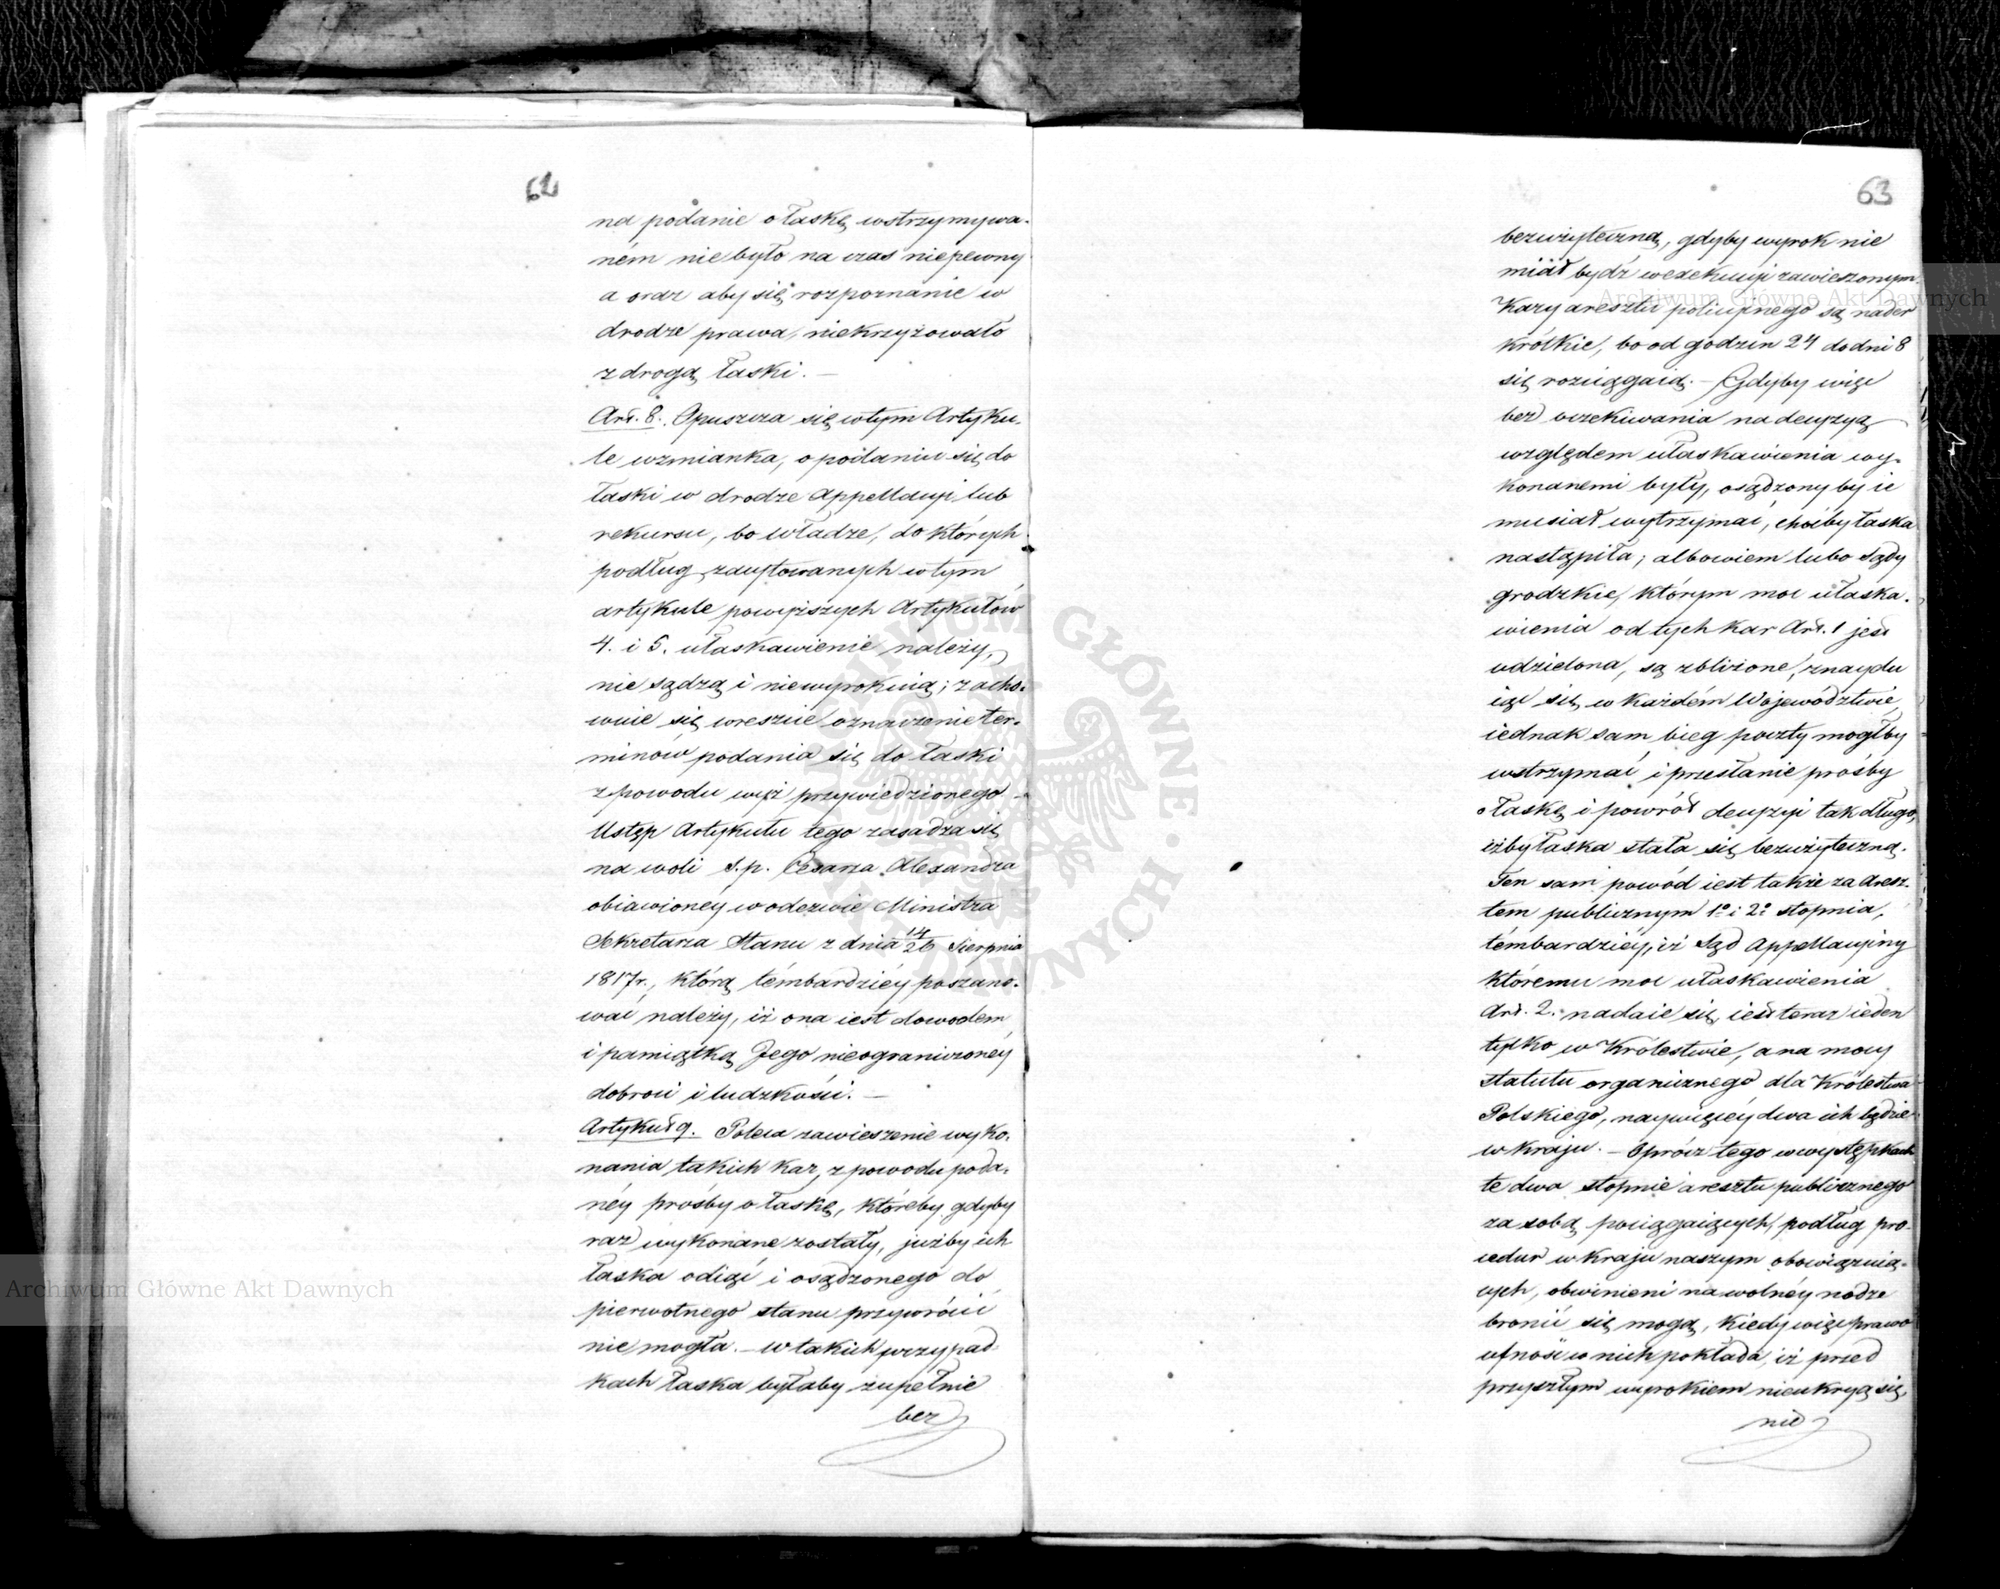 62
na podanie o łaskę wstrzymywa-
ném nie było na czas niepewny
a oraz aby się rozpoznanie w
drodze prawa, niekrzyżowało
z drogą łaski. —
Art. 8. Opuszcza się w tym Artyku-
le wzmianka, o podaniu się do
łaski w drodze appellacyi lub
rekursu, bo władze, do których
podług zacytowanych w tym
artykule powyższych Artykułów
4. i 5. ułaskawienie należy,
nie sądzą i niewyrokuią; zacho-
wuie się wreszcie oznaczenie ter-
minow podania się do łaski
z powodu wyż przywiedzionego —
Ustęp Artykułu tego zasadza się
na woli ś.p. Cesarza Alexandra
obiawioney w odezwie Ministra
Sekretarza Stanu z dnia 14/26 Sierpnia
1817r., którą témbardziéy poszano-
wać należy, iż ona iest dowodem
i pamiątką Jego nieograniczonéy
dobroci i ludzkości. —
Artykuł 9. Poleca zawieszenie wyko-
nania takich kar, z powodu poda-
néy prośby o łaskę, któreby gdyby
raz wykonane zostały, jużby ich
łaska odiąć i osądzonego do
pierwotnego stanu przywrócić
nie mogła. — W takich przypad-
kach łaska byłaby zupełnie
bez
63
bezużyteczną, gdyby wyrok nie
miał bydź w exekucyi zawieszonym.
Kary aresztu policyinego są nader
krótkie, bo od godzin 24 do dni 8
się rozciągaią. — Gdyby więc
bez oczekiwania na decyzyą
względem ułaskawienia wy-
konanemi były, osądzony by ie
musiał wytrzymać, choćby łaska
nastąpiła; albowiem lubo Sądy
grodzkie, którym moc ułaska-
wienia od tych kar Art. 1 jest
udzielona, są zbliżone, znaydu
iąc się w każdém Województwie,
iednak sam bieg poczty mogłby
wstrzymać i przesłanie prośby
o łaskę i powrót decyzyi tak długo,
iżby łaska stała się bezużyteczną.
Ten sam powód iest także za aresz-
tem publicznym 1º i 2º stopnia,
témbardziéy, iż Sąd Appellacyiny
któremu moc ułaskawienia
Art. 2. nadaie się, iest teraz ieden
tylko w Królestwie, a na mocy
statutu organicznego dla Królestwa
Polskiego, naywięcéy dwa ich będzie
w kraju. — Oprócz tego w występkach
te dwa stopnie aresztu publicznego
za sobą pociągaiących, podług pro-
cedur w kraju naszym obowiązuią-
cych, obwinieni na wolnéy nodze
bronić się mogą, kiedy więc prawo
ufność w nich pokłada, iż przed
przyszłym wyrokiem nieukryą się,
nie
Archiwum Główne Akt Dawnych
Archiwum Główne Akt Dawnych
ARCHIWUM GŁÓWNE AKT DAWNYCH